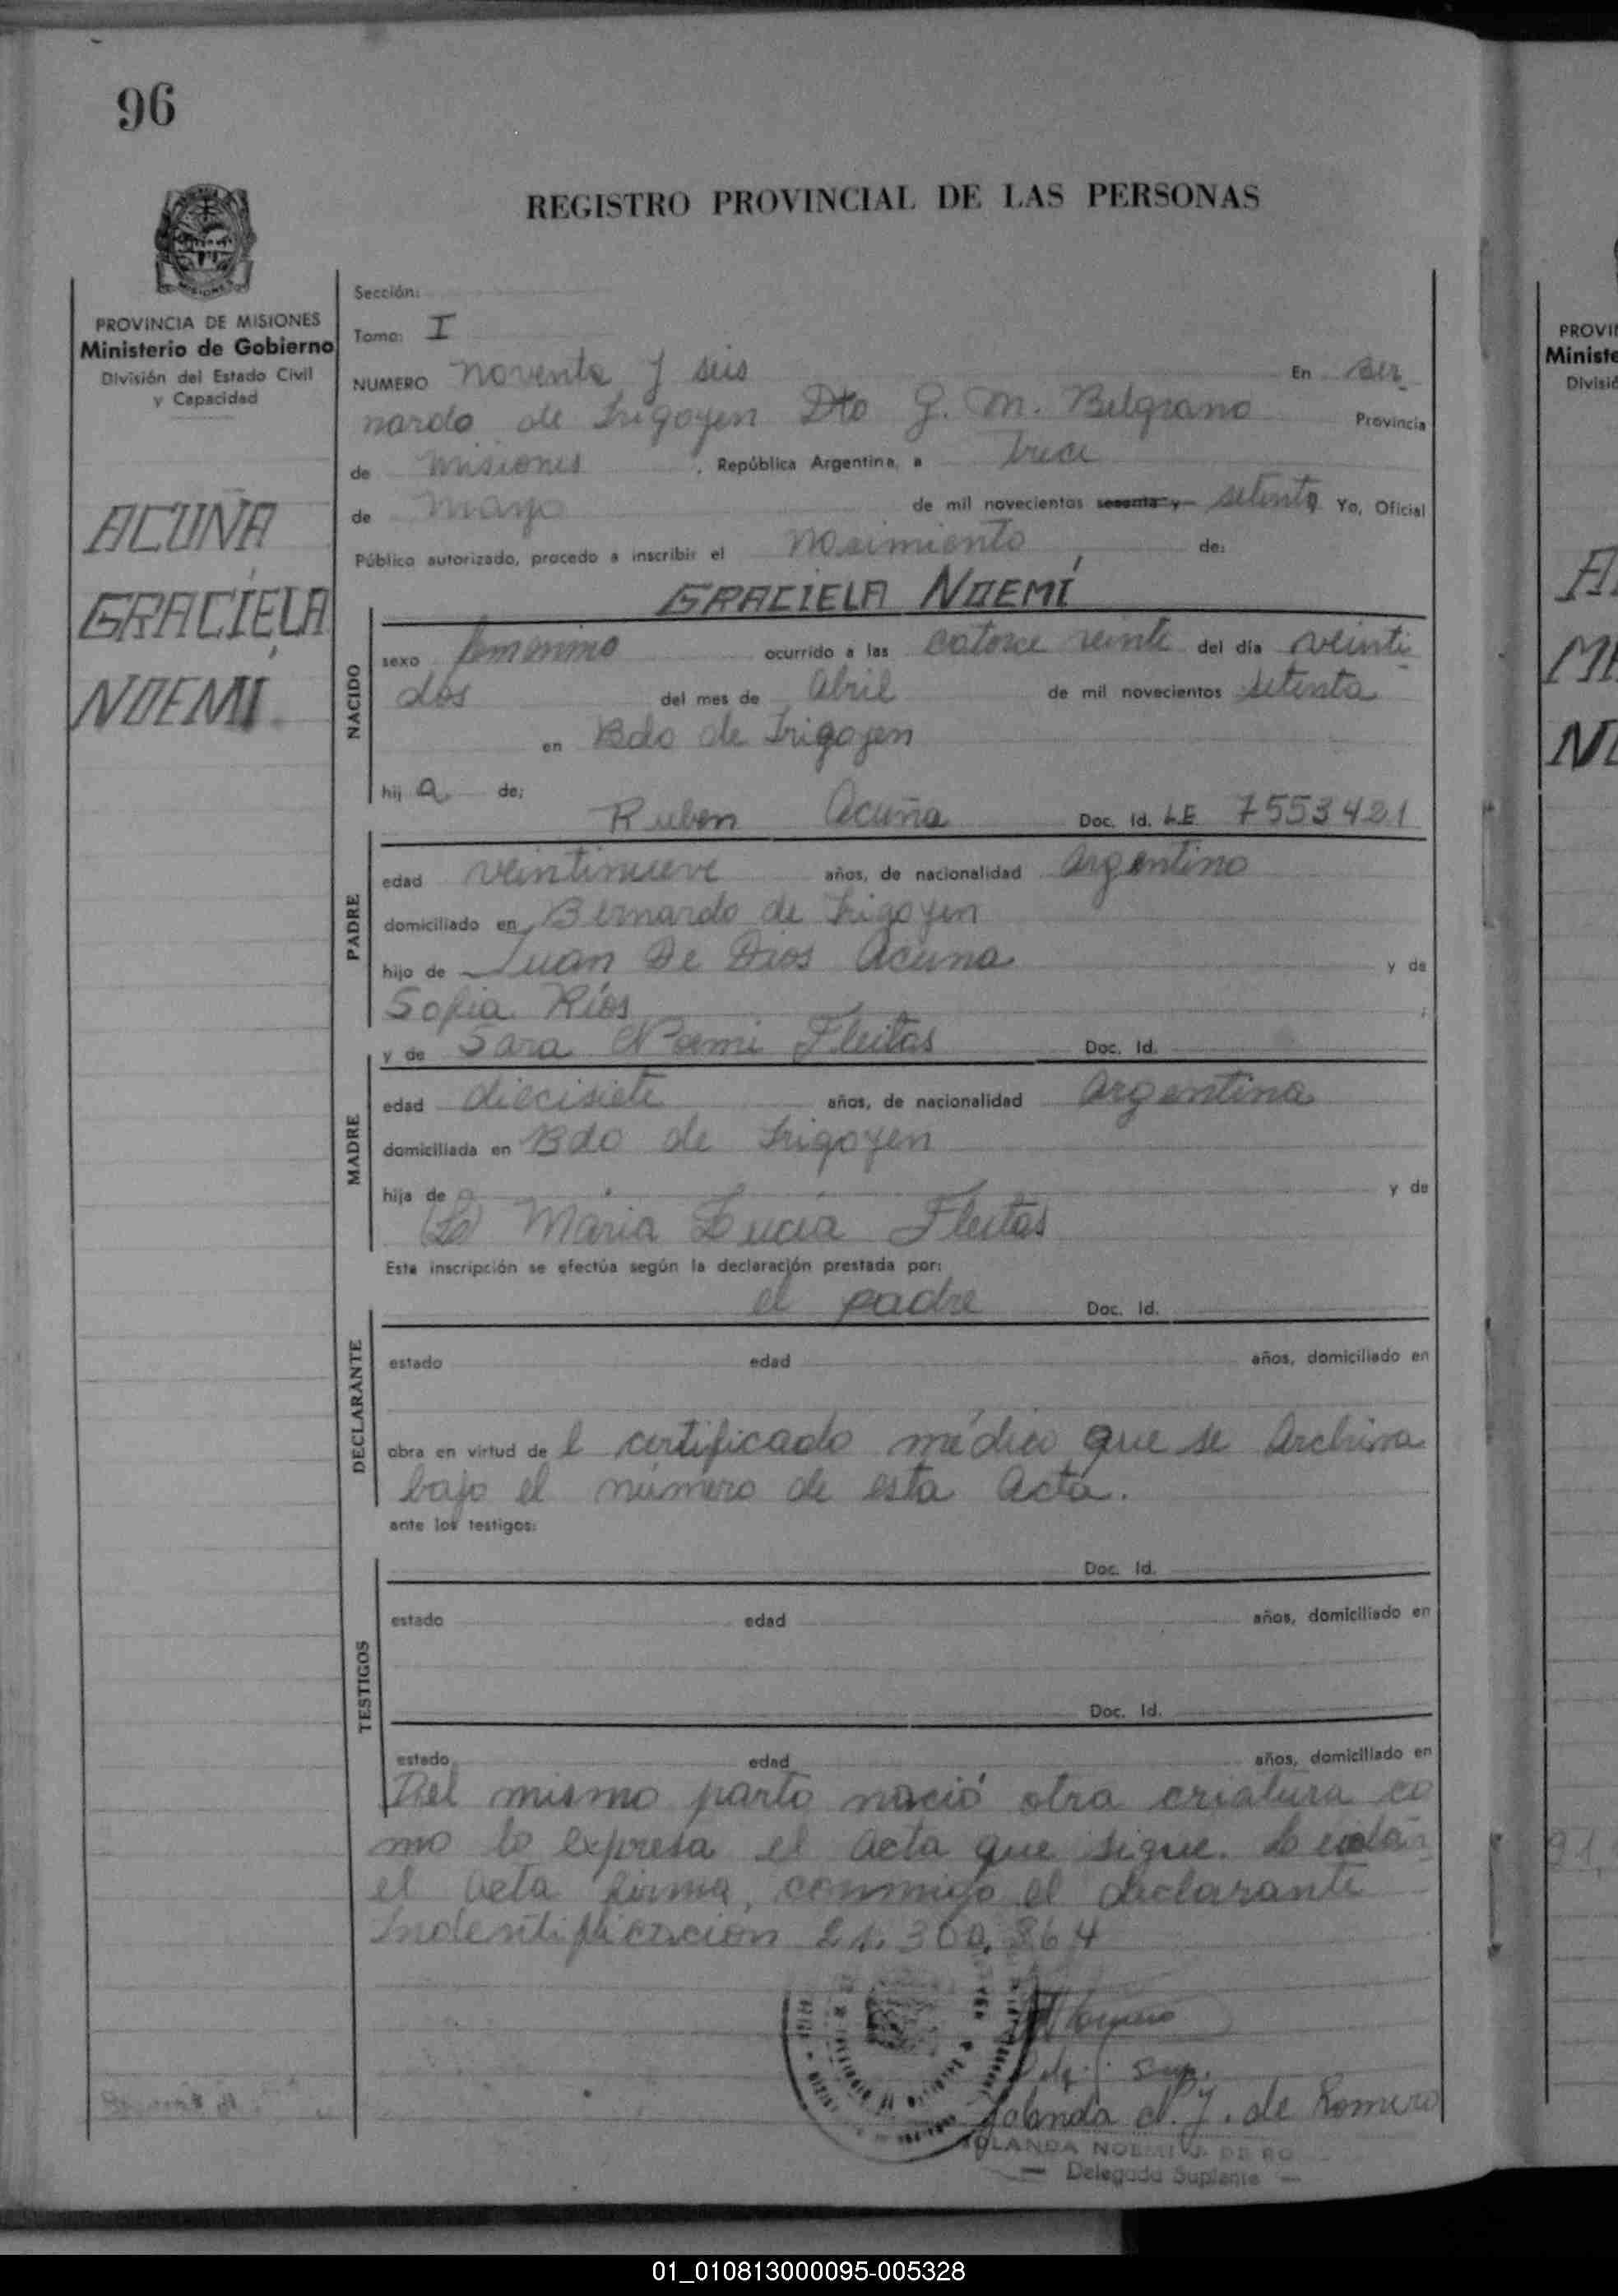 96
REGISTRO PROVINCIAL DE LAS PERSONAS
PROVINCIA DE MISIONES
Ministerio de Gobierno
División del Estado Civil
y Capacidad
ACUÑA
GRACIELA
NOEMÍ
Sección:
Tomo: I
NUMERO noventa y seis En Ber
nardo de Irigoyen Dto G. M. Belgrano Provincia
de Misiones, República Argentina, a trece
de mayo de mil novecientos sesenta y setenta Yo, Oficial
Público autorizado, procedo a inscribir el nacimiento de:
GRACIELA NOEMÍ
NACIDO
sexo femenino ocurrido a las catorce veinte del día veinti
dos del mes de abril de mil novecientos setenta
en Bdo de Irigoyen
hij a de:
Ruben Acuña Doc. Id. L.E. 7553421
PADRE
edad veintinueve años, de nacionalidad argentino
domiciliado en Bernardo de Irigoyen
hijo de Juan De Dios Acuna y de
Sofia Ríos
y de Sara Noemi Fleitas Doc. Id.
MADRE
edad diecisiete años, de nacionalidad argentina
domiciliada en Bdo de Irigoyen
hija de y de
Maria Lucia Fleitas
Esta inscripción se efectúa según la declaración prestada por:
el padre Doc. Id.
DECLARANTE
estado edad años, domiciliado en
obra en virtud de l certificado médico que se archiva
bajo el número de esta acta.
ante los testigos:
TESTIGOS
Doc. Id.
estado edad años, domiciliado en
Doc. Id.
estado edad años, domiciliado en
Del mismo parto nació otra criatura co
mo lo expresa el acta que sigue.
el acta firma, conmigo el declarante
Indentificacion 21.300.864
Yolanda N. J. de Romero
YOLANDA NOEMI J. DE RO
— Delegada Suplente —
PROVI
Ministe
Divisió
01_010813000095-005328